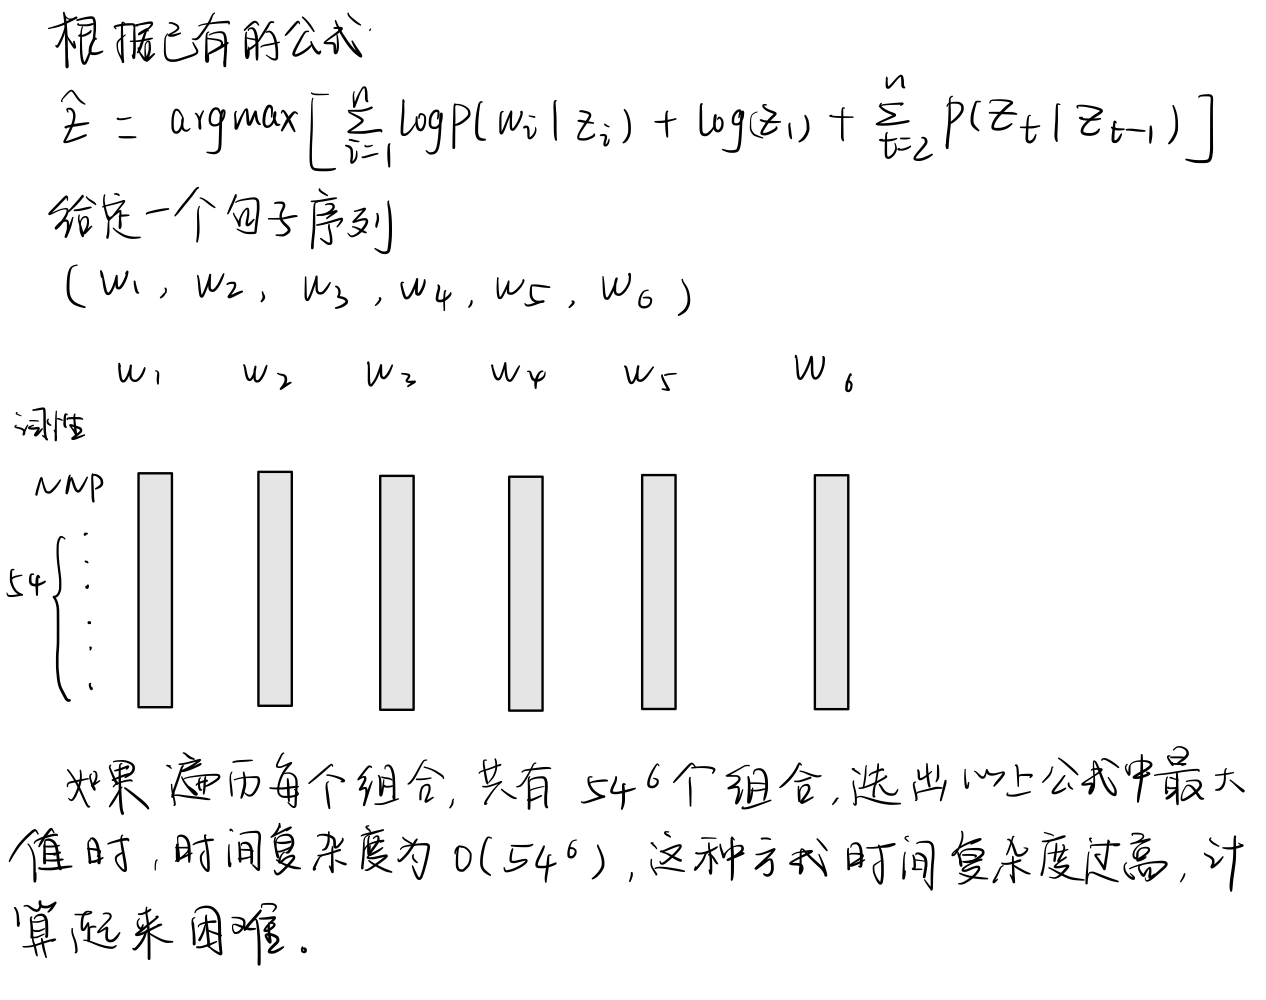 根据已有的公式
ẑ = argmax[ ∑_{i=1}^{n} logP(wi | zi) + log(z1) + ∑_{t=2}^{n} P(Zt | Zt-1) ]
给定一个句子序列
(w1, w2, w3, w4, w5, w6)
w1 w2 w3 w4 w5 w6
词性
NNP
54
如果遍历每个组合,共有 54^6个组合,选出以上公式中最大
值时,时间复杂度为 O(54^6),这种方式时间复杂度过高,计
算起来困难。